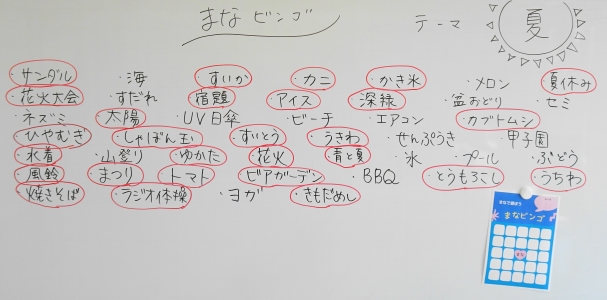 まなビンゴ
テーマ 夏
・サンダル ・海 ・すいか ・カニ ・かき氷 ・メロン 夏休み
・花火大会 ・すだれ ・宿題 ・アイス ・深緑 ・盆おどり ・セミ
・ネズミ ・太陽 ・UV日傘 ・ビーチ ・エアコン ・カブトムシ
・ひやむぎ ・しゃぼん玉 ・すいとう ・うきわ ・せんぷうき ・甲子園
・水着 ・山登り ・ゆかた ・花火 ・青と夏 ・氷 ・プール ・ぶどう
・風鈴 ・まつり ・トマト ・ビアガーデン ・BBQ ・とうもろこし ・うちわ
・焼きそば ・ラジオ体操 ・ヨガ ・きもだめし
まなビンゴ